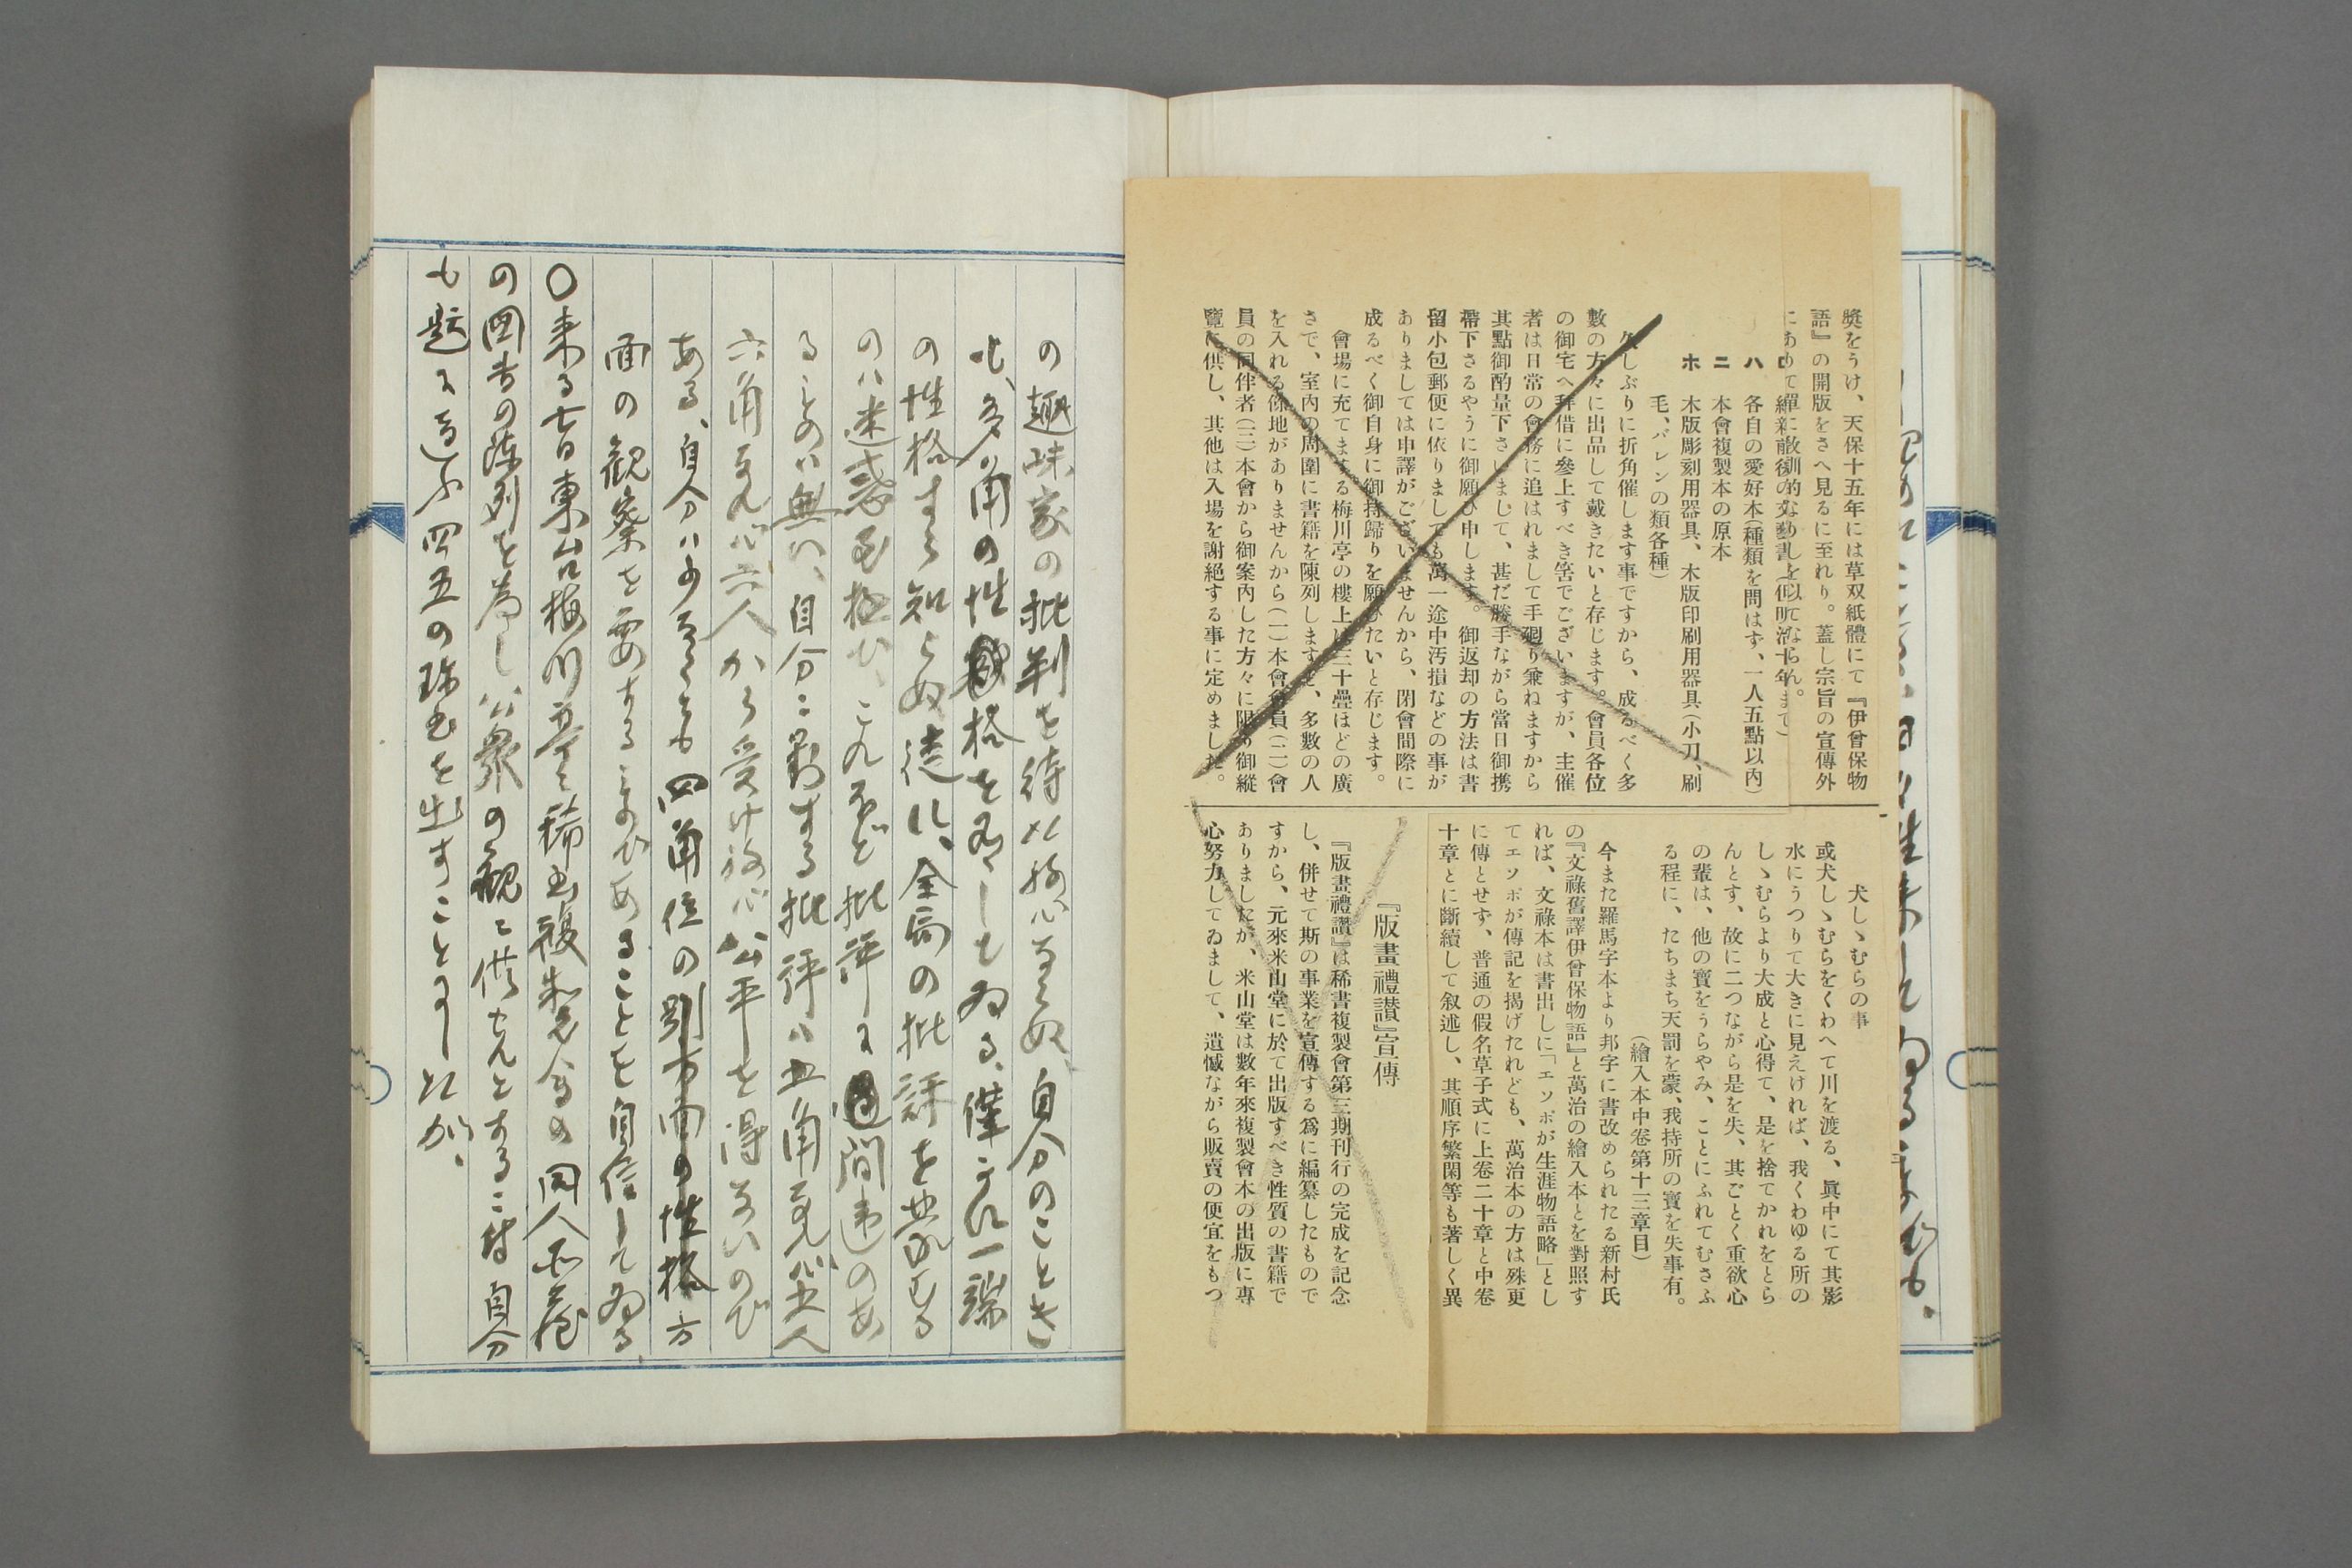 獎をうけ、天保十五年には草双紙體にて『伊曾保物
語』の開版をさへ見るに至れり。蓋し宗旨の宣傳外
にありて單に敎訓的なりしを以てならん。
ハ　各自の愛好本(種類を問はず、一人五點以內)
ニ　本會複製本の原本
ホ　木版彫刻用器具、木版印刷用器具(小刀、刷
毛、バレンの類各種)
久しぶりに折角催します事ですから、成るべく多
數の方々に出品して戴きたいと存じます。會員各位
の御宅へ拜借に參上すべき筈でございますが、主催
者は日常の會務に追はれまして手廻り兼ねますから
其點御酌量下さいまして、甚だ勝手ながら當日御携
帶下さるやうに御願ひ申します。御返却の方法は書
留小包郵便に依りましても萬一途中汚損などの事が
ありましては申譯がございませんから、閉會間際に
成るべく御自身に御持歸りを願ひたいと存じます。
會場に充てまする梅川亭の樓上は三十疊ほどの廣
さで、室內の周圍に書籍を陳列しますと、多數の人
を入れる餘地がありませんから(一)本會會員(二)會
員の同伴者(三)本會から御案內した方々に限り御縱
覽に供し、其他は入場を謝絕する事に定めました。
犬しゝむらの事
或犬しゝむらをくわへて川を渡る、眞中にて其影
水にうつりて大きに見えければ、我くわゆる所の
しゝむらより大成と心得て、是を捨てかれをとら
んとす、故に二つながら是を失、其ごとく重欲心
の輩は、他の寶をうらやみ、ことにふれてむさふ
る程に、たちまち天罰を蒙、我持所の寶を失事有。
(繪入本中卷第十三章目)
今また羅馬字本より邦字に書改められたる新村氏
の『文祿舊譯伊曾保物語』と萬治の繪入本とを對照す
れば、文祿本は書出しに「エソポが生涯物語略」とし
てエソポが傳記を揭げたれども、萬治本の方は殊更
に傳とせず、普通の假名草子式に上卷二十章と中卷
十章とに斷續して叙述し、其順序繁閑等も著しく異
『版畫禮讃』宣傳
『版畫禮讃』は稀書複製會第三期刊行の完成を記念
し、併せて斯の事業を宣傳する爲に編纂したもので
すから、元來米山堂に於て出版すべき性質の書籍で
ありましたが、米山堂は數年來複製會本の出版に專
心努力してゐまして、遺憾ながら販賣の便宜をもつ
の趣味家の批判を待たねばならぬ、自分のことき
も、多角の性格を有してゐる、僅に一端
の性格すら知らぬ徒に、全局の批評を要求する
のハ迷惑至極だ、これほど批評に間違のあ
るものハ無い、自分に對する批評ハ五角ならバ五人
六角ならバ六人から受けねバ公平を得ないので
ある、自分ハ少なくとも四角位の別方面の性格方
面の觀察を要するものであることを自信してゐる
〇来る七日東台梅川亭で稀書複製會の同人所蔵
の図書の陳列を為し公衆の観に供せんとするに付自分
も四五の珍書を出すことにした